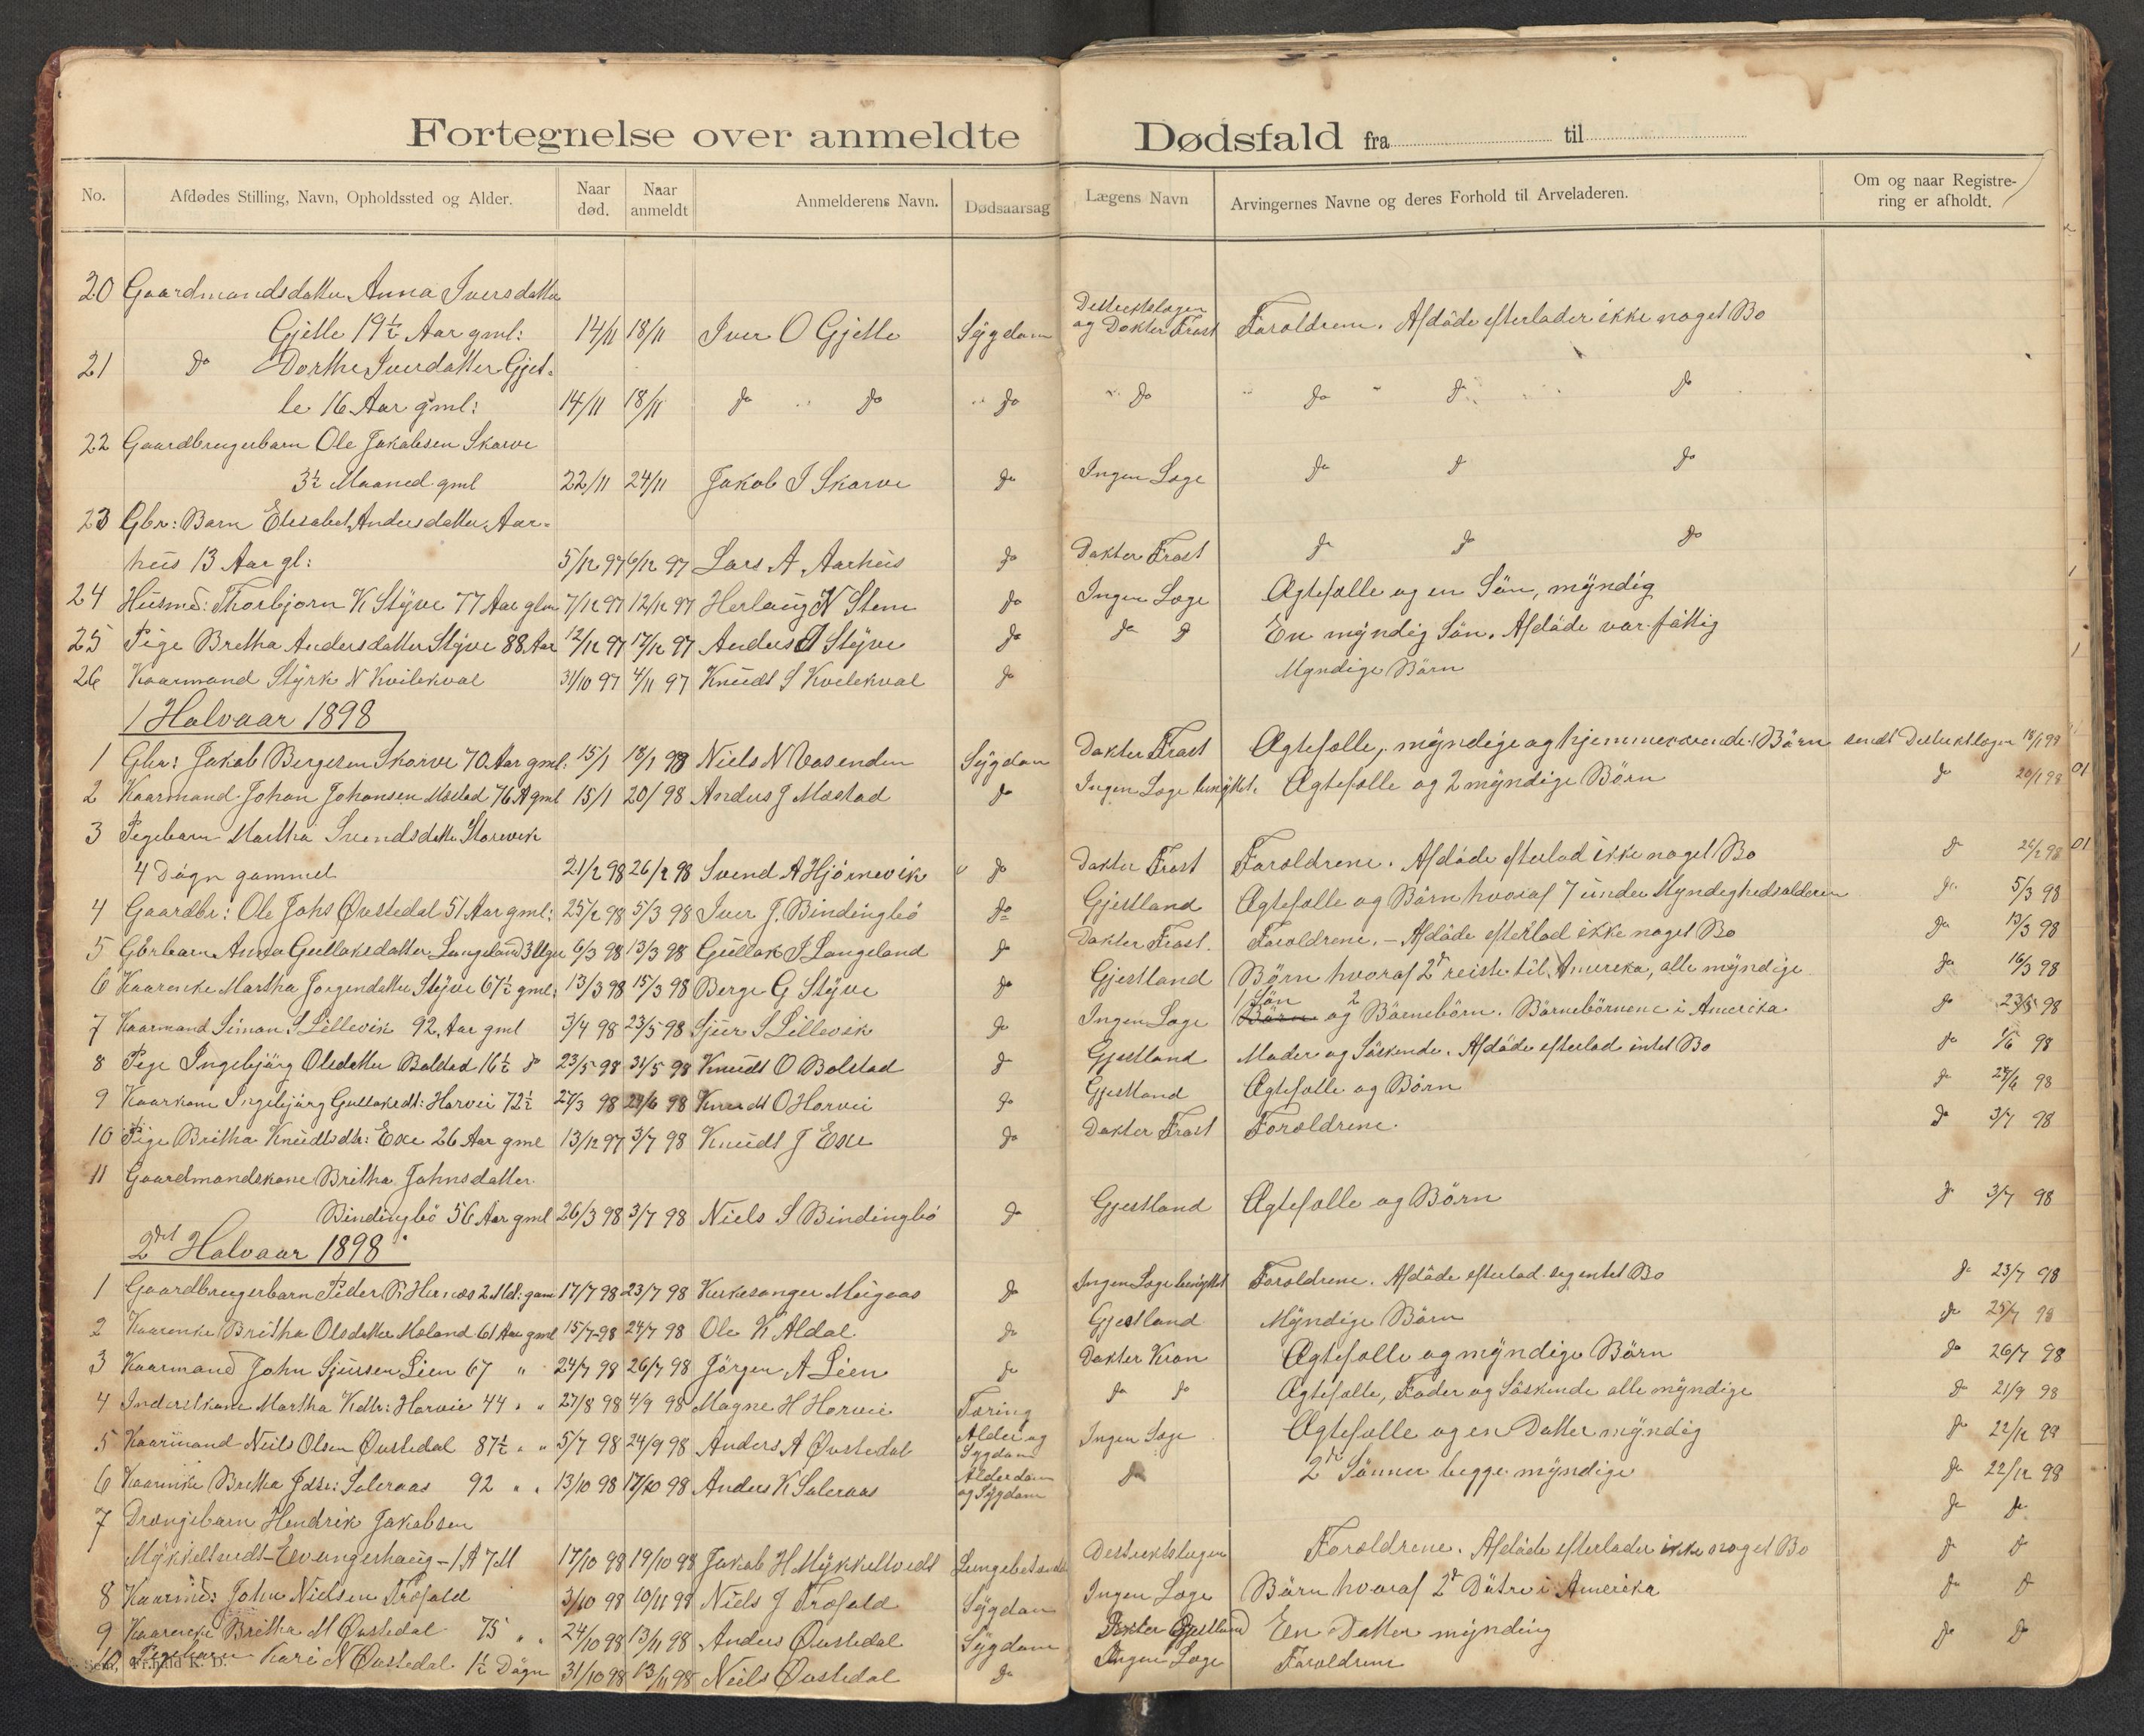 Fortegnelse over anmeldte Dødsfald fra til
No. Afdødes Stilling, Navn, Opholdssted og Alder. Naar død. Naar anmeldt Anmelderens Navn. Dødsaarsag Lægens Navn Arvingernes Navne og deres Forhold til Arveladeren. Om og naar Registrering er afholdt.
20 Gaardmandsdatter Anna Iversdatter
Gjelle 19½ Aar gml: 14/11 18/11 Iver O Gjelle Sygdom og Dokter Frost Foroldrene. Afdøde efterlader ikke noget Bo
21 do Dorthe Iversdatter Gjel-
le 16 Aar gml: 14/11 18/11 do do do do do do do
22 Gaardbrugerbarn Ole Jakobsen Skorve
3½ Maaned gml 22/11 24/11 Jakob I Skorve do Ingen Læge do do do
23 Gbr: Barn Elisabet Andersdatter Aar-
hus 13 Aar gl: 5/12 97 6/12 97 Lars A Aarhus do Dokter Frost do do do
24 Husmd: Thorbjørn K Styve 77 Aar glm 7/12 97 12/12 97 Herlaug N Stem do Ingen Læge Ægtefælle og en Søn, myndig
25 Pige Bretha Andersdatter Styve 88 Aar 12/12 97 17/12 97 Anders Styve do do do En myndig Søn. Afdøde var fattig
26 Kaarmand Styrk N Kvilekval 31/10 97 4/11 97 Knudt S Kvilekval do Myndige Børn
1 Halvaar 1898
1 Gbr: Jakob Bergesen Skorve 70 Aar gml: 15/1 18/1 98 Niels N Væsenden Sygdom Dokter Frost Ægtefælle, myndige og hjemmeværende Børn sendt 18/1 98
2 Kaarmand Johan Johansen Mostad 76 A gml 15/1 20/1 98 Anders J Mostad do Ingen Læge benyttet. Ægtefælle og 2 myndige Børn do 20/1 98
3 Pigebarn Martha Svendsdatter Storevik
4 Døgn gammel 21/2 98 26/2 98 Svend A Hjørnevik do Dokter Frost Foroldrene. Afdøde efterlod ikke noget Bo do 26/2 98
4 Gaardbr: Ole Johs Øvstedal 51 Aar gml: 25/2 98 5/3 98 Iver J. Bindingbø do Gjestland Ægtefælle og Børn hvoraf 7 under Myndighedsalderen do 5/3 98
5 Gbrbarn Anna Gullaksdatter Langeland 3 Uger 6/3 98 13/3 98 Gullak I Langeland do Dokter Frost. Foroldrene. - Afdøde efterlod ikke noget Bo do 13/3 98
6 Kaarenke Martha Jørgendatter Styve 67½ gml: 13/3 98 15/3 98 Berge G Styve do Gjestland Børn hvoraf 2de reiste til Amerika, alle myndige do 16/3 98
7 Kaarmand Simon S Lillevik 92 Aar gml 3/4 98 23/5 98 Sjur S Lillevik do Ingen Læge 1 Søn og 2 Børnebørn. Børnebørnene i Amerika do 23/5 98
8 Pige Ingebjørg Olsdatter Bolstad 16½ do 23/5 98 31/5 98 Knudt O Bolstad do Gjestland Moder og Søskende. Afdøde efterlod intet Bo do 1/6 98
9 Kaarkone Ingebjørg Gullaksdt: Horvei 72½ 27/3 98 29/6 98 Knudt O Horvei do Gjestland Ægtefælle og Børn do 29/6 98
10 Pige Britha Knudtsdtr: Exe 26 Aar gml 13/12 97 3/7 98 Knudt J Exe do Dokter Frost Foroldrene. do 3/7 98
11 Gaardmandskone Britha Johnsdatter
Bindingbø 56 Aar gml 26/3 98 3/7 98 Niels S Bindingbø do Gjestland Ægtefælle og Børn do 3/7 98
2det Halvaar 1898
1 Gaardbrugerbarn Peder P. Hernæs 2 Md: gam 17/7 98 23/7 98 Kirkesanger Mugaas do Ingen Læge benyttet Foroldrene. Afdøde efterlod sig intet Bo do 23/7 98
2 Kaarenke Britha Olsdatter Moland 61 Aar gml 15/7 98 24/7 98 Ole K Aldal do Gjestland Myndige Børn do 25/7 98
3 Kaarmand John Sjursen Lien 67 " 24/7 98 26/7 98 Jørgen A Lien do Dokter Kron Ægtefælle og myndige Børn do 26/7 98
4 Inderstkone Martha Kdtr: Horvei 44 " " 27/8 98 4/9 98 Magne H Horvei Tæring do do Ægtefælle, Fader og Søskende alle myndige do 21/9 98
5 Kaarmand Neils Olsen Øvstedal 87½ " " 5/7 98 24/9 98 Anders A Øvstedal Alder og Sygdom Ingen Læge Ægtefælle og en Datter myndig do 22/12 98
6 Kaarenke Britha Jdtr: Saleraas 92 " " 13/10 98 17/10 98 Anders K Saleraas Alderdom og Sygdom do 2de Sønner begge myndige do 22/12 98
7 Drengebarn Hendrik Jakobsen do do
Mykkeltvedt-Evangerhaug - 1 A 7 M 17/10 98 19/10 98 Jakob H Mykkeltvedt Foroldrene. Afdøde efterlader ikke noget Bo do do
8 Kaarmd: John Nielsen Træfald 3/10 98 10/11 98 Niels J Træfald Sygdom Ingen Læge Børn hvoraf 2de Døtre i Amerika do do
9 Kaarenke Britha M Øvstedal 75 " " 24/10 98 13/11 98 Anders Øvstedal Sygdom Dokter Gjestland En Datter mynding do do
10 Pigebarn Kari N Øvstedal 1½ Døgn 31/10 98 13/11 98 Neils Øvstedal do Ingen Læge Foroldrene